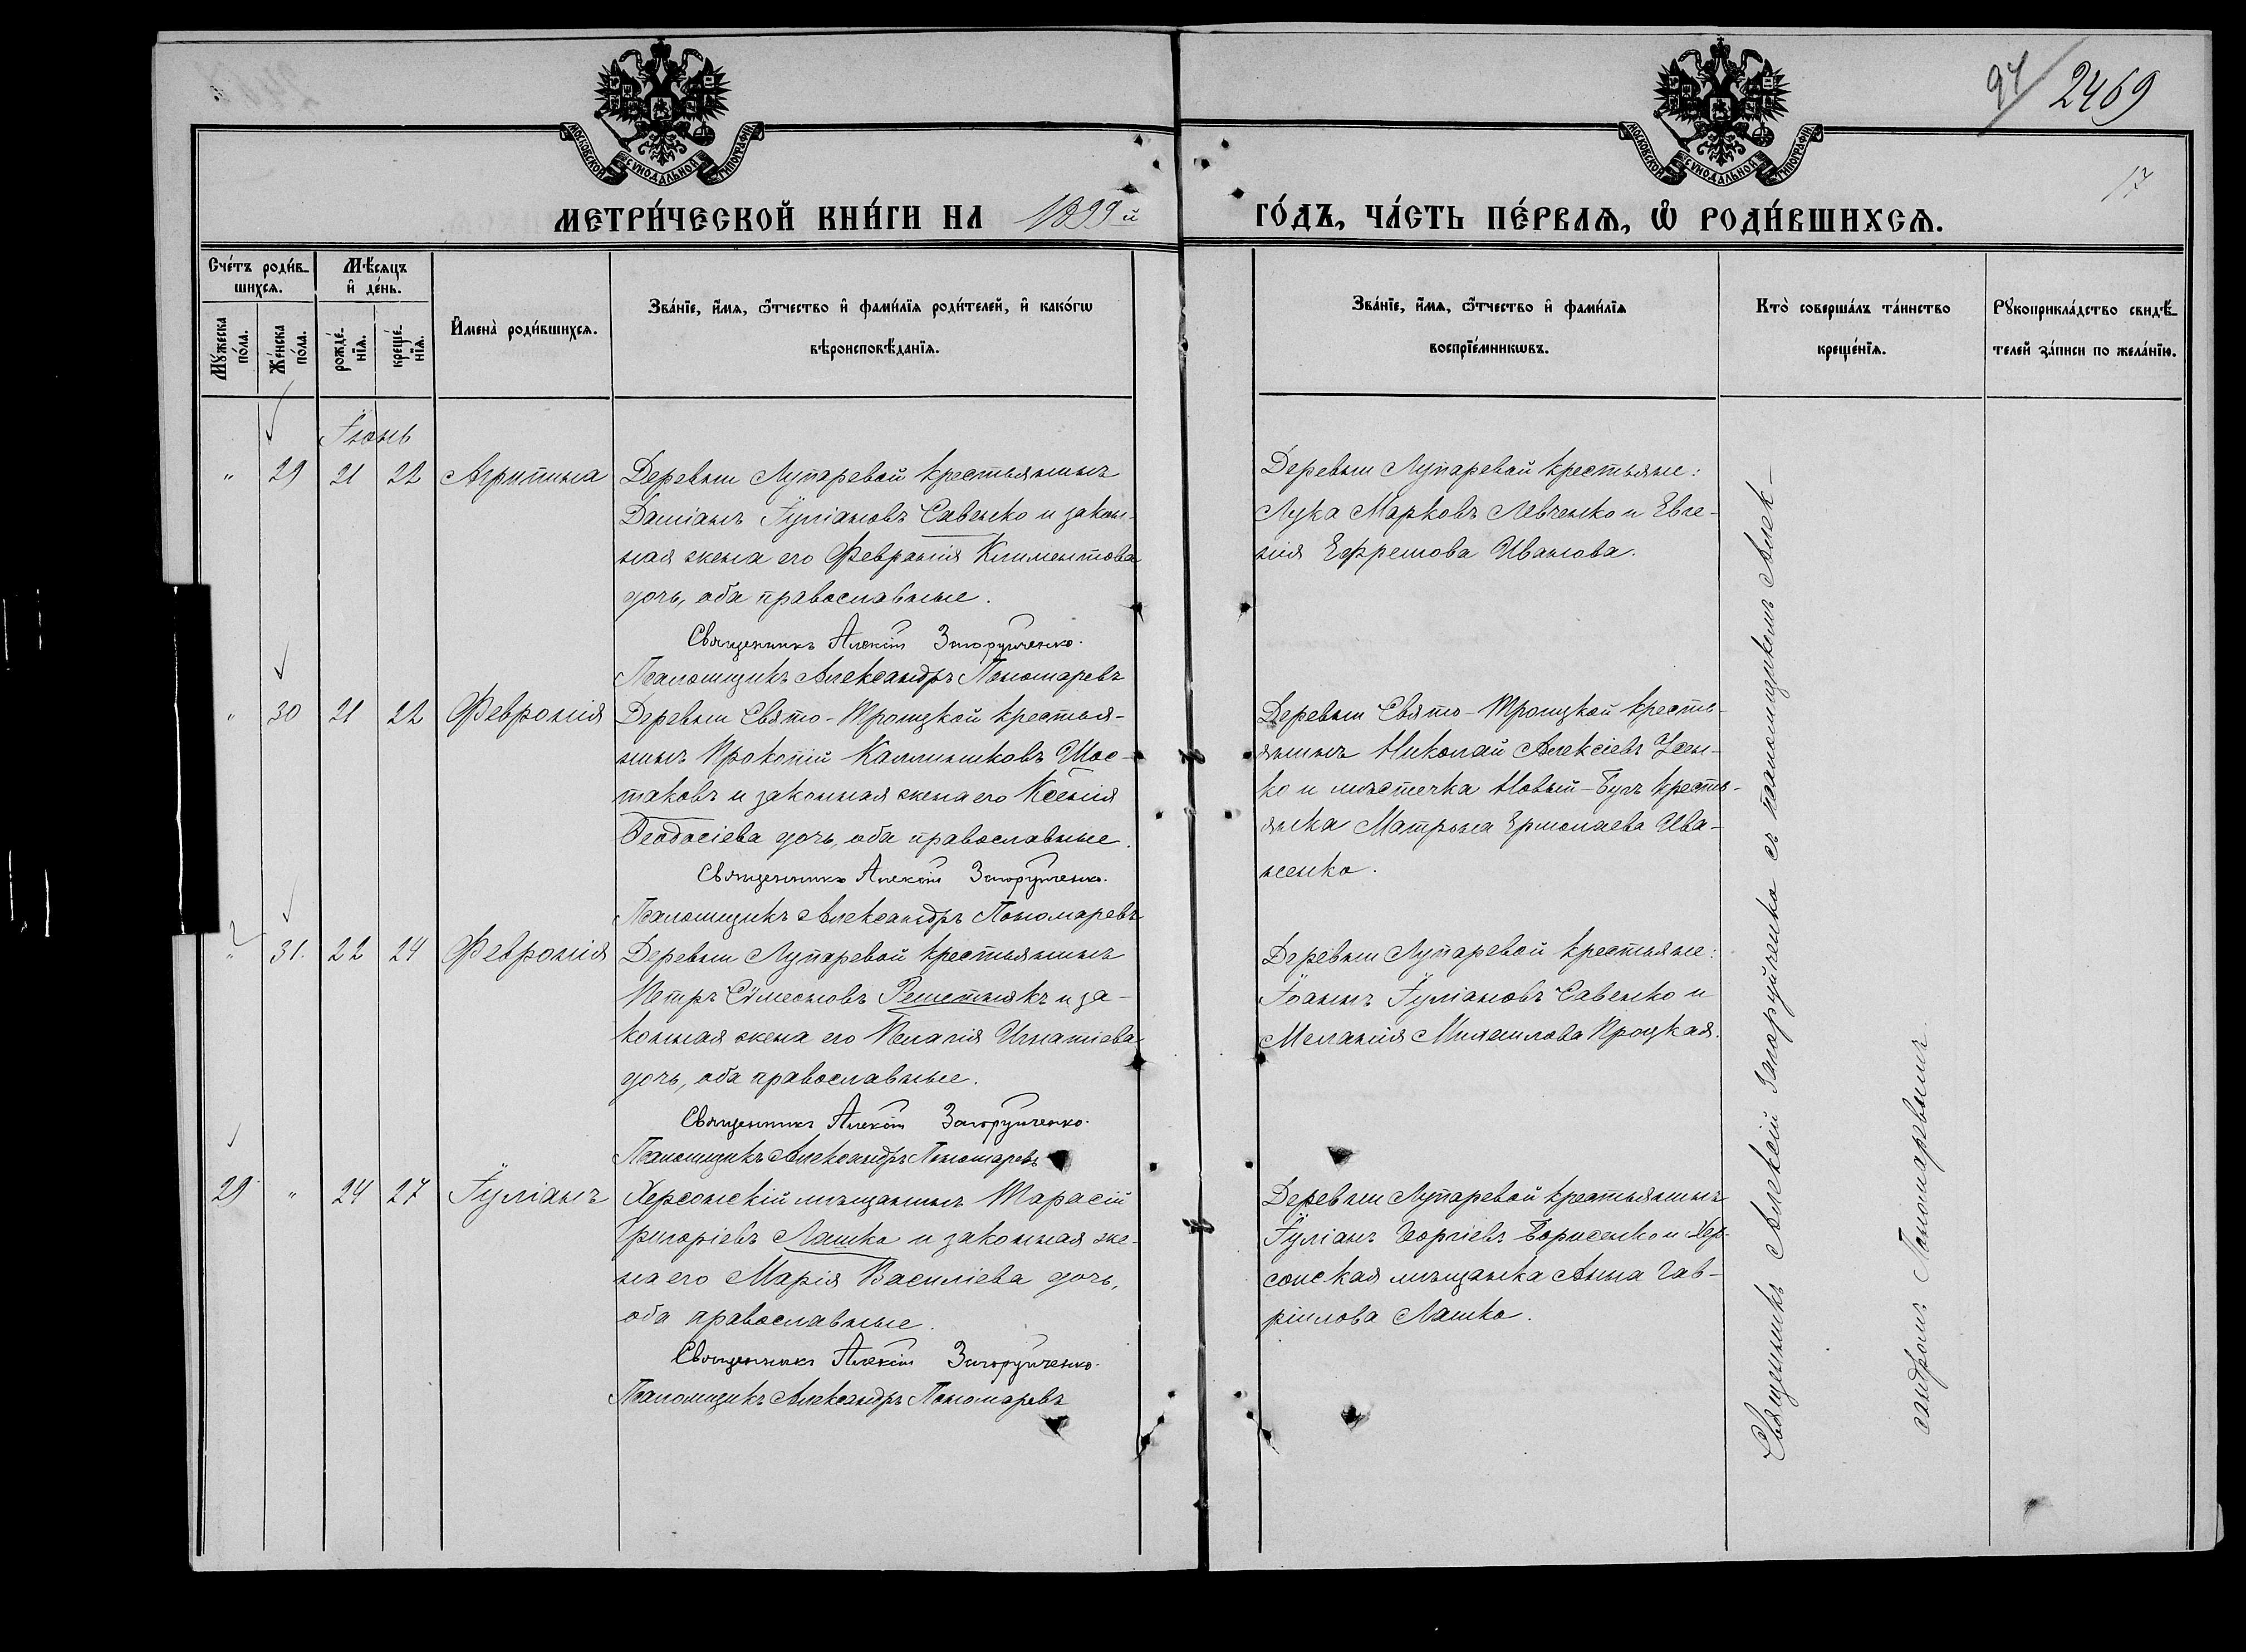 94/2469
17
МОСКОВСКОЙ СѴНОДАЛЬНОЙ ТИПОГРАФІИ
МОСКОВСКОЙ СѴНОДАЛЬНОЙ ТИПОГРАФІИ
МЕТРИ́ЧЕСКОЙ КНИ́ГИ НА 1899й ГО́ДЪ, ЧА́СТЬ ПЕ́РВАѦ, Ѡ҆ РОДИ́ВШИХСѦ.
Сче́тъ роди́в-
шихсѧ.
Мѣ́сѧцъ
и҆ де́нь.
Мꙋ́жеска
по́ла.
Же́нска
по́ла.
рожде́-
нїѧ.
креще́-
нїѧ.
И҆мена̀ роди́вшихсѧ.
Зва́нїе, и҆́мѧ, ѻ҆́тчество и҆ фами́лїѧ роди́телей, и҆ како́гѡ
вѣроисповѣ́данїѧ.
Зва́нїе, и҆́мѧ, ѻ҆́тчество и҆ фами́лїѧ
воспрїе́мникѡвъ.
Кто̀ соверша́лъ та́инство
креще́нїѧ.
Рꙋкоприкла́дство свидѣ́-
телей за́писи по жела́нїю.
Іюнь
" 29 21 22 Агрипина
Деревни Лупаревой крестьянинъ
Даміанъ Іуліановъ Савенко и закон-
ная жена его Февронія Климентова
дочь, оба православные.
Священникъ Алексій Загоруйченко.
Псаломщикъ Александръ Пономаревъ
Деревни Лупаревой крестьяне:
Лука Марковъ Левченко и Евге-
нія Ефремова Иванова.
" 30 21 22 Февронія
Деревни Свято-Троицкой крестья-
нинъ Прокопій Каллиниковъ Шос-
таковъ и законная жена его Ксенія
Ѳеодосіева дочь, оба православные.
Священникъ Алексій Загоруйченко.
Псаломщикъ Александръ Пономаревъ
Деревни Свято-Троицкой кресть-
янинъ Николай Алексіевъ Усен-
ко и мѣстечка Новый-Бугъ кресть-
янка Матрона Ермолаева Ива-
ненко.
" 31. 22 24 Февронія
Деревни Лупаревой крестьянинъ
Петръ Сѵмеоновъ Решетнякъ и за-
конная жена его Пелагія Игнатіева
дочь, оба православные.
Священникъ Алексій Загоруйченко.
Псаломщикъ Александръ Пономаревъ
Деревни Лупаревой крестьяне:
Іоаннъ Іуліановъ Савенко и
Меланія Михаилова Процкая.
29 " 24 27 Іуліанъ
Херсонскій мѣщанинъ Тарасій
Григоріевъ Лашко и законная же-
на его Марія Василіева дочь,
оба православные.
Священникъ Алексій Загоруйченко.
Псаломщикъ Александръ Пономаревъ
Деревни Лупаревой крестьянинъ
Іуліанъ Георгіевъ Борисенко и Хер-
сонская мѣщанка Анна Гав-
ріилова Лашко.
Священникъ Алексій Загоруйченко съ псаломщикомъ Алек-
сандромъ Пономаревымъ